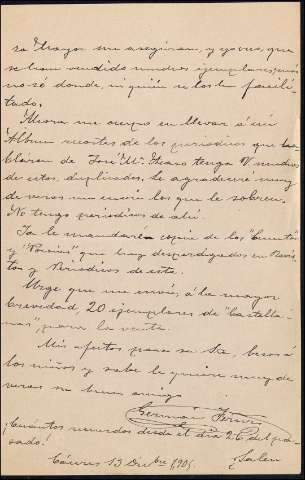 sa Thazar me aseguran, y yo veo, que
se han vendido muchos ejemplares, más
no sé donde, ni quién se los ha facili-
tado.
Ahora me ocupo en llevar á un
Album recortes de los periódicos que ha-
blaron de José Mª. tenga V. muchos
de estos, duplicados, le agradeceré muy
de veras me envíe los que le sobren.
No tengo periódicos de ahí.
Ya le mandaré copia de los "Cuentos"
y "Poesías" que hay desperdigados en Revis-
tas y Periódicos de esta.
Urge que me envíe, á la mayor
brevedad, 20 ejemplares de "Castella-
nas", para la venta.
Mis afectos para su tía, besos á
los niños y sabe le quiere muy de
veras su buen amigo
Germán
¡Cuántos recuerdos desde el día 26 del pa-
sado!
Cáceres 13 Dicbre 1905.